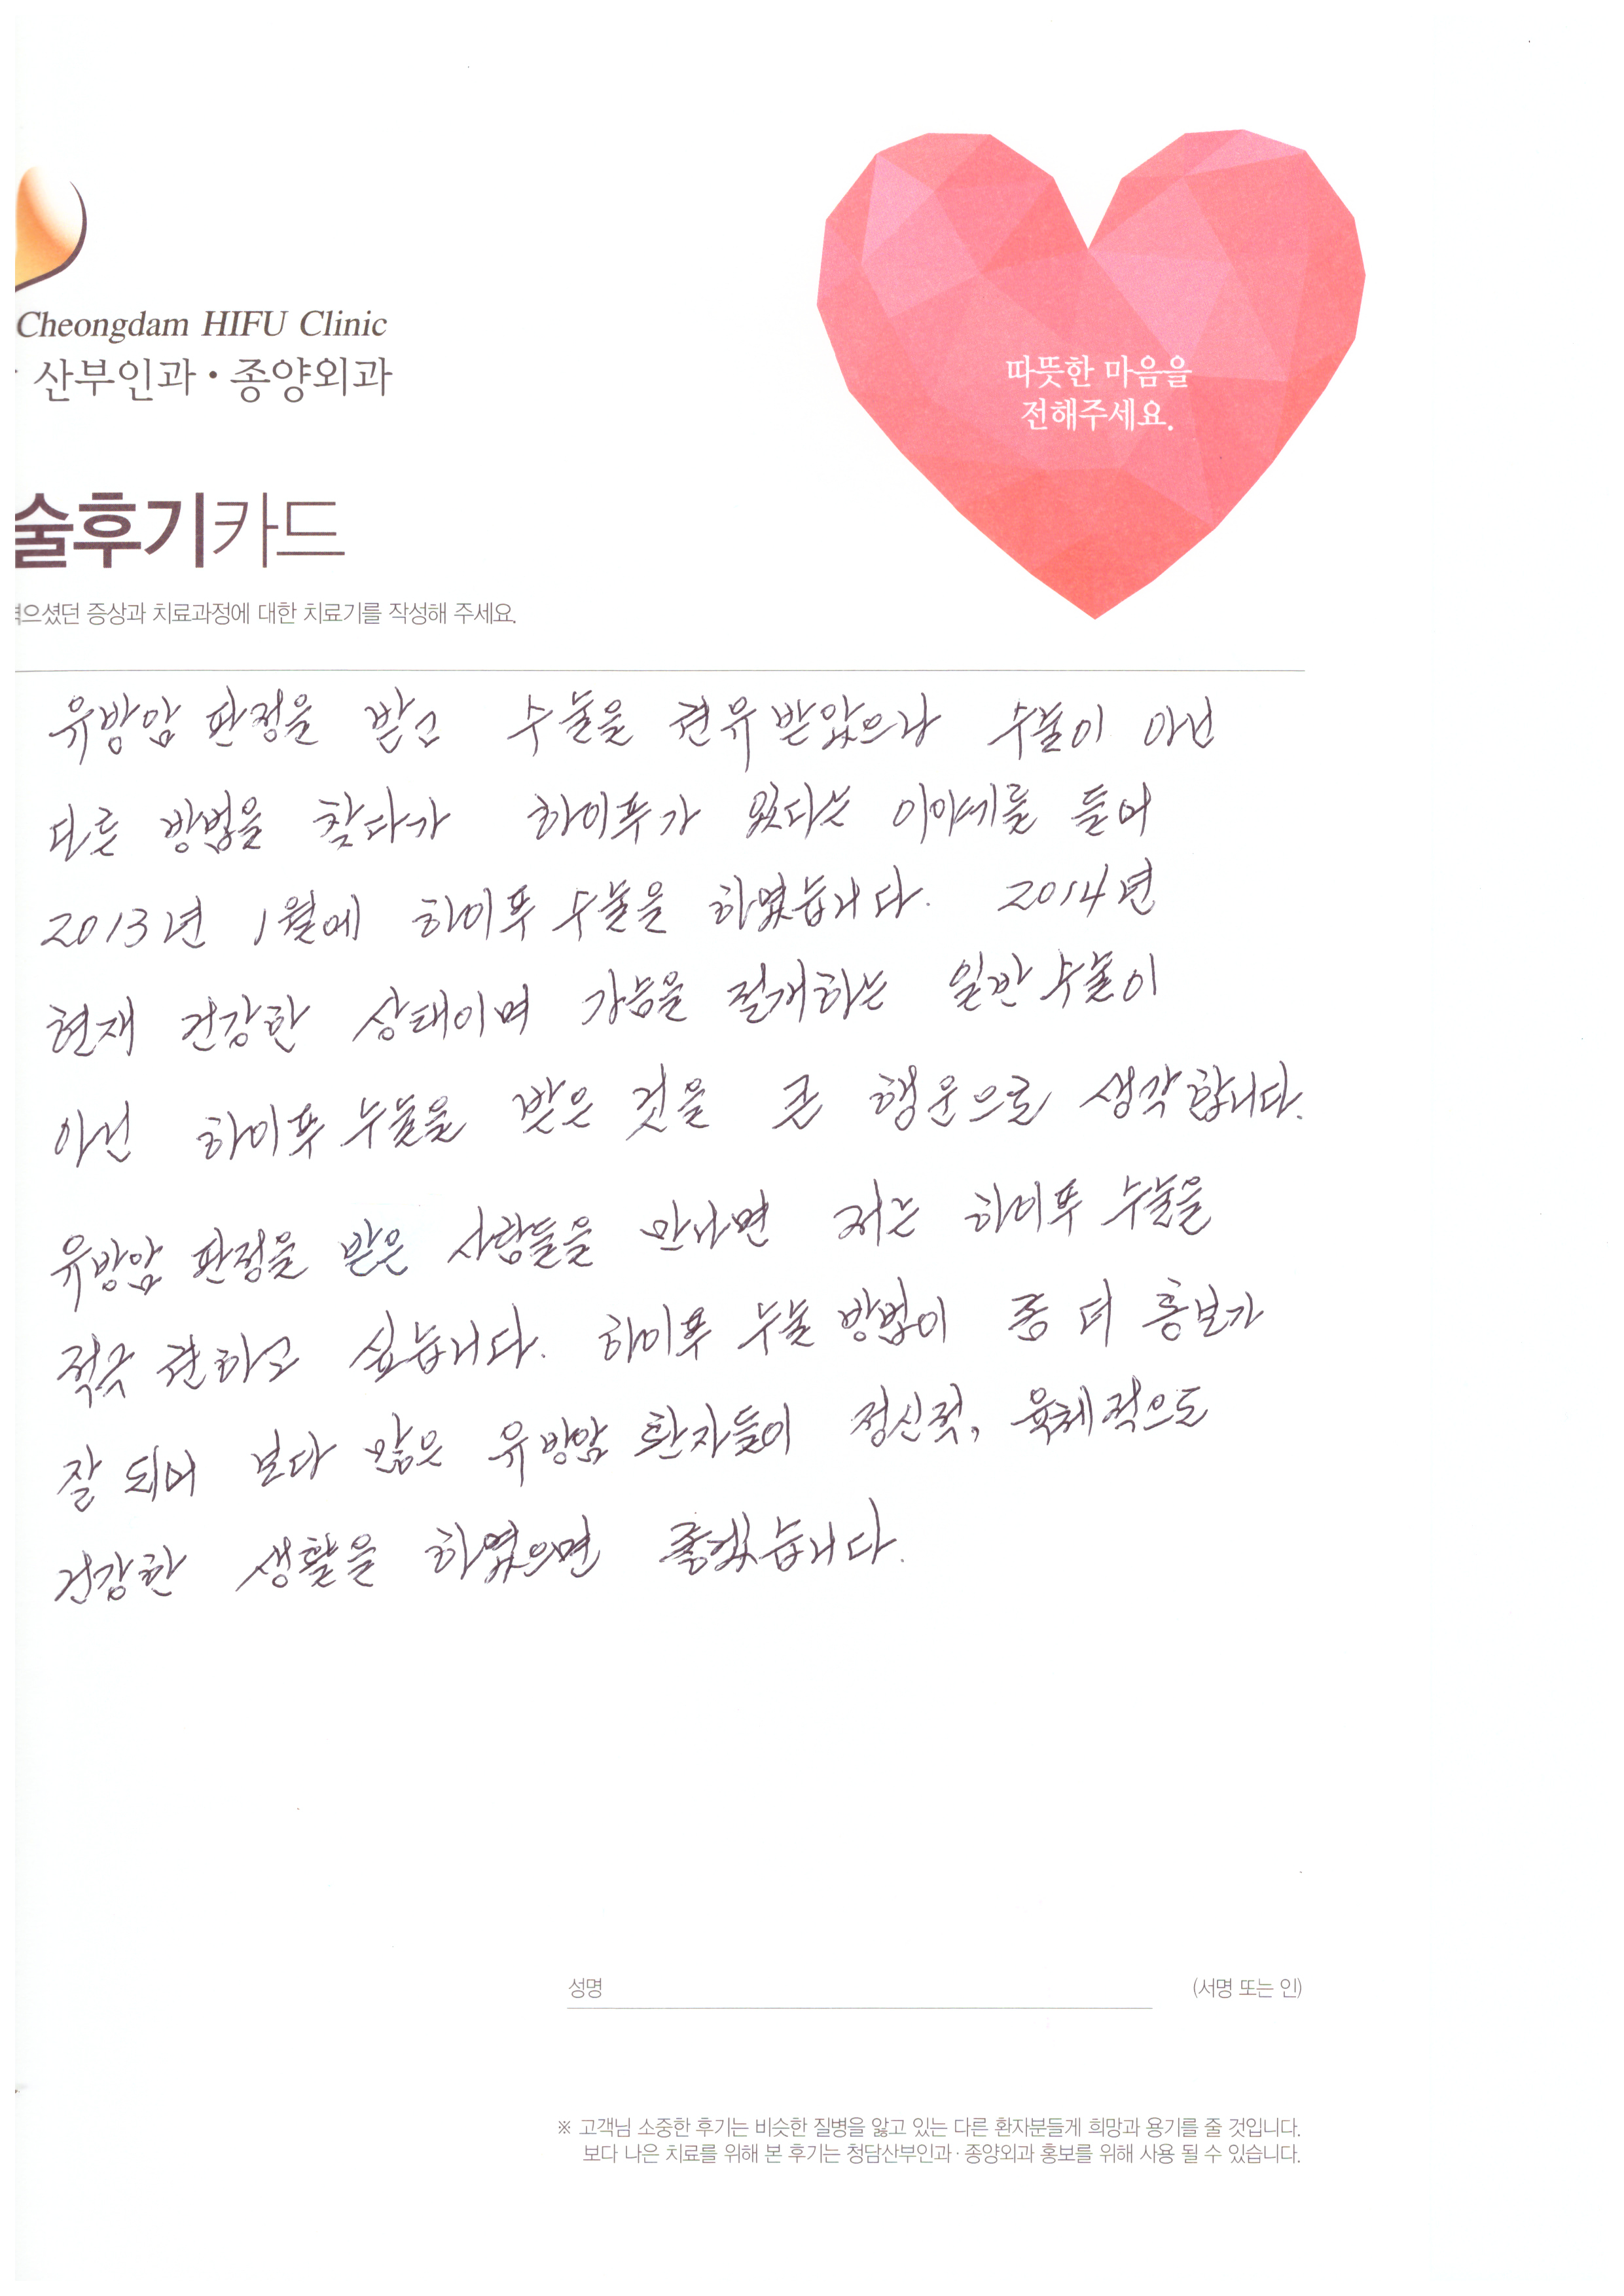 Cheongdam HIFU Clinic
산부인과·종양외과
따뜻한 마음을
전해주세요.
술후기카드
겪으셨던 증상과 치료과정에 대한 치료기를 작성해 주세요.
유방암 판정을 받고 수술을 권유 받았으나 수술이 아닌
다른 방법을 찾다가 하이푸가 있다는 이야기를 들어
2013년 1월에 하이푸 수술을 하였습니다. 2014년
현재 건강한 상태이며 가슴을 절개하는 일반 수술이
아닌 하이푸 수술을 받은 것을 큰 행운으로 생각합니다.
유방암 판정을 받은 사람들을 만나면 저는 하이푸 수술을
적극 권하고 싶습니다. 하이푸 수술 방법이 좀 더 홍보가
잘 되어 보다 많은 유방암 환자들이 정신적, 육체적으로
건강한 생활을 하였으면 좋겠습니다.
성명 (서명 또는 인)
※ 고객님 소중한 후기는 비슷한 질병을 앓고 있는 다른 환자분들게 희망과 용기를 줄 것입니다.
보다 나은 치료를 위해 본 후기는 청담산부인과·종양외과 홍보를 위해 사용 될 수 있습니다.